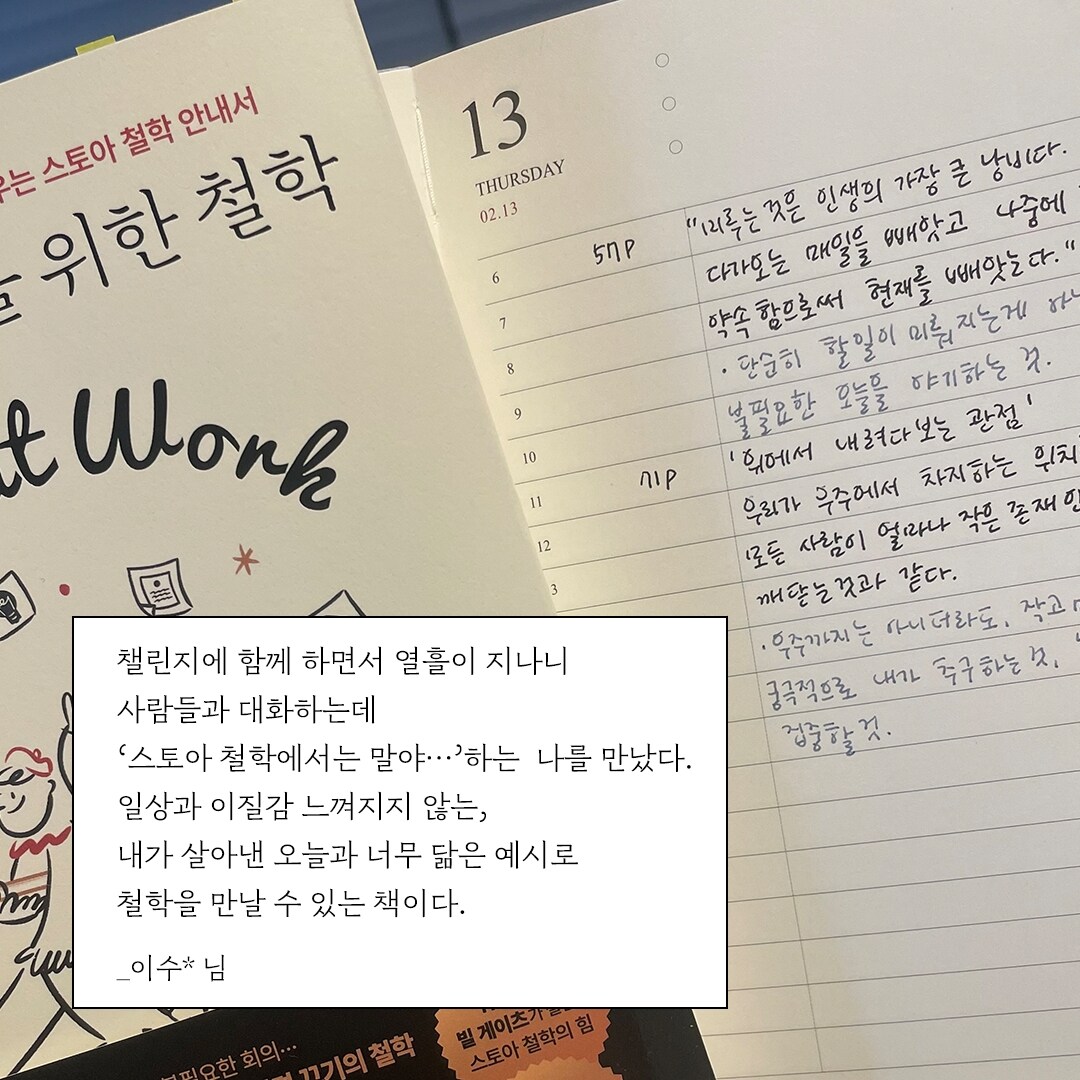 스토아 철학 안내서
위한 철학
Work
13
THURSDAY
02.13
6
7
8
9
10
11
12
3
57P
"미루는것은 인생의 가장 큰 낭비다.
다가오는 매일을 빼앗고 나중에
약속함으로써 현재를 빼앗는다."
· 단순히 할일이 미뤄지는게
불필요한 오늘을 야기하는 것.
71P
'위에서 내려다보는 관점'
우리가 우주에서 차지하는 위치
모든 사람이 얼마나 작은 존재인
깨닫는것과 같다.
· 우주까지는 아니더라도, 작고
궁극적으로 내가 추구하는것,
집중할 것.
챌린지에 함께 하면서 열흘이 지나니
사람들과 대화하는데
‘스토아 철학에서는 말야…’하는 나를 만났다.
일상과 이질감 느껴지지 않는,
내가 살아낸 오늘과 너무 닮은 예시로
철학을 만날 수 있는 책이다.
_이수* 님
회의…
끄기의 철학
빌 게이츠가
스토아 철학의 힘